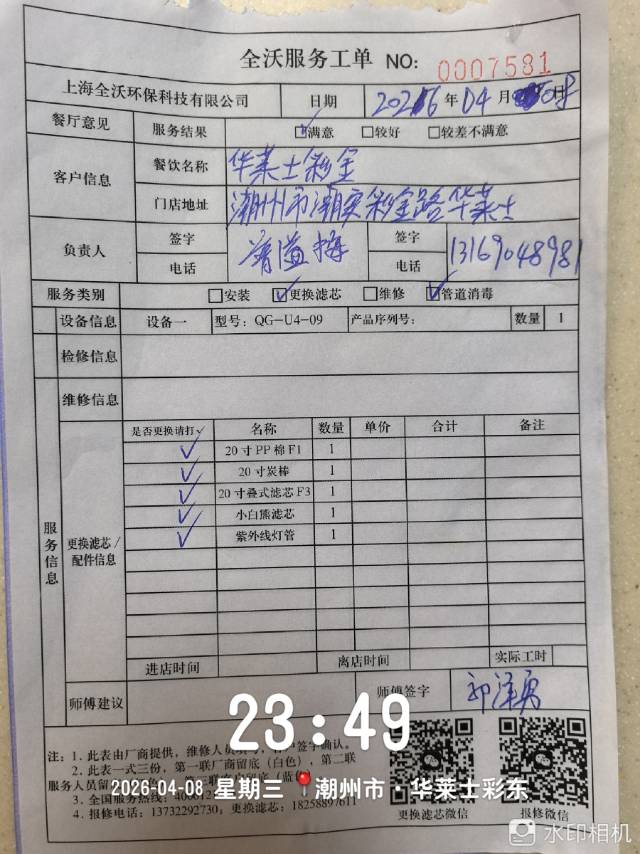 全沃服务工单 NO: 0007581
上海全沃环保科技有限公司 日期 2026年04月08日
餐厅意见 服务结果 ☑满意 □较好 □较差不满意
客户信息 餐饮名称 华莱士彩金
门店地址 潮州市潮安彩金路华莱士
负责人 签字 签字
电话 电话 13169048981
服务类别 □安装 ☑更换滤芯 □维修 ☑管道消毒
设备信息 设备一 型号: QG-U4-09 产品序列号: 数量 1
检修信息
维修信息
服务信息 更换滤芯/配件信息
是否更换请打✓ 名称 数量 单价 合计 备注
✓ 20寸PP棉F1 1
✓ 20寸炭棒 1
✓ 20寸叠式滤芯F3 1
✓ 小白熊滤芯 1
✓ 紫外线灯管 1
进店时间 离店时间 实际工时
师傅建议 师傅签字
23:49
注: 1. 此表由厂商提供, 维修人员填写, 客户签字确认。
2. 此表一式三份, 第一联厂商留底(白色), 第二联
服务人员留
3. 全国服务热线: 40001
2026-04-08 星期三 潮州市·华莱士彩东
4. 报修电话: 13732292730, 更换滤芯: 18258897611
更换滤芯微信 报修微信
水印相机